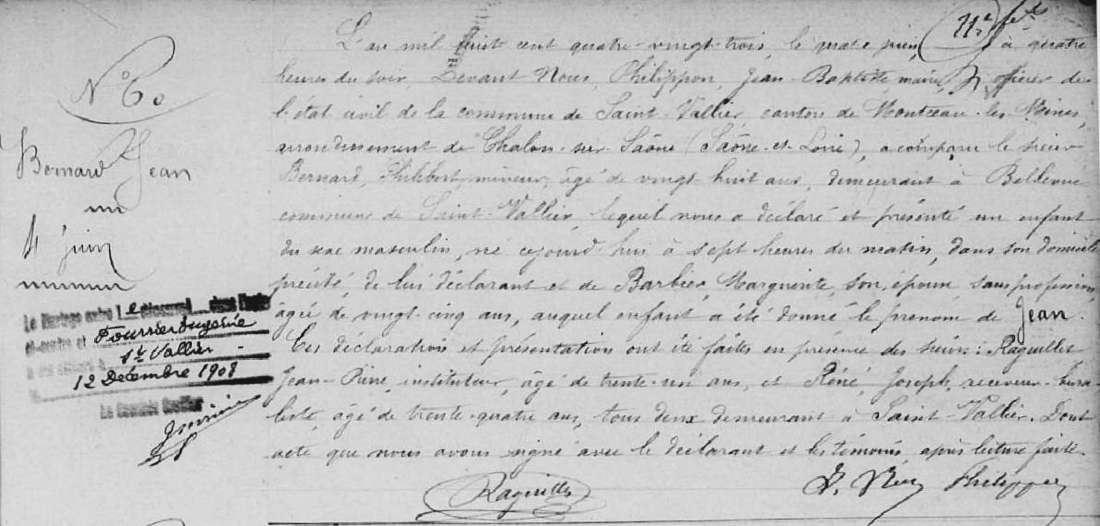 11e f.t
N° 60
Bernard Jean
né
4 juin
Le Mariage entre Le dénommé dans l'acte
ci-contre et Fournier Eugénie
a été célébré à St Vallier
12 Décembre 1908
Le Commis Greffier
L'an mil huit cent quatre-vingt-trois, le quatre juin, à quatre
heures du soir, Devant Nous, Philippon, Jean-Baptiste maire, officier de
l'état civil de la commune de Saint-Vallier, canton de Montceau-les-Mines,
arrondissement de Chalon-sur-Saône (Saône-et-Loire), a comparu le sieur
Bernard, Philibert, mineur, âgé de vingt-huit ans, demeurant à Bellevue
commune de Saint-Vallier, lequel nous a déclaré et présenté un enfant
du sexe masculin, né cejourd'hui à sept heures du matin, dans son domicile
précité, de lui déclarant et de Barbier, Marguerite, son épouse sans profession,
âgée de vingt-cinq ans, auquel enfant a été donné le prénom de Jean.
Ces déclaration et présentation ont été faites en présence des sieurs : Raquillet
Jean-Pierre, instituteur, âgé de trente-un ans, et Réné, Joseph, receveur-bura-
liste, âgé de trente-quatre ans, tous deux demeurant à Saint-Vallier. Dont
acte que nous avons signé avec le déclarant et les témoins, après lecture faite.
Raquillet
Philippon